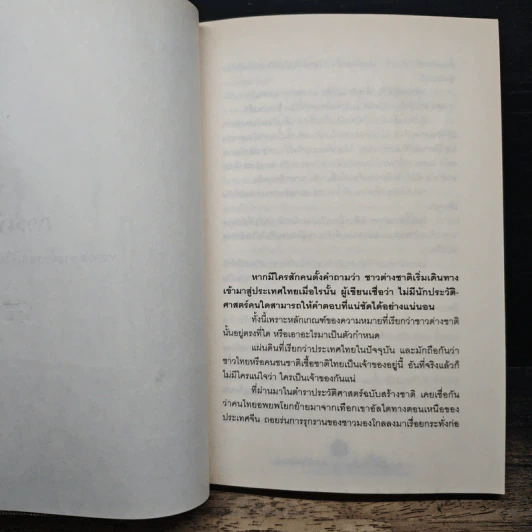 หากมีใครสักคนตั้งคำถามว่า ชาวต่างชาติเริ่มเดินทาง
เข้ามาสู่ประเทศไทยเมื่อไรนั้น ผู้เขียนเชื่อว่า ไม่มีนักประวัติ-
ศาสตร์คนใดสามารถให้คำตอบที่แน่ชัดได้อย่างแน่นอน
ทั้งนี้เพราะหลักเกณฑ์ของความหมายที่เรียกว่าชาวต่างชาติ
นั้นอยู่ตรงที่ใด หรือเอาอะไรมาเป็นตัวกำหนด
แผ่นดินที่เรียกว่าประเทศไทยในปัจจุบัน และมักถือกันว่า
ชาวไทยหรือคนชนชาติเชื้อชาติไทยเป็นเจ้าของอยู่นี้ อันที่จริงแล้วก็
ไม่มีใครแน่ใจว่า ใครเป็นเจ้าของกันแน่
ที่ผ่านมาในตำราประวัติศาสตร์ฉบับสร้างชาติ เคยเชื่อกัน
ว่าคนไทยอพยพโยกย้ายมาจากเทือกเขาอัลไตทางตอนเหนือของ
ประเทศจีน ถอยร่นการรุกรานของชาวมองโกลลงมาเรื่อยกระทั่งก่อ